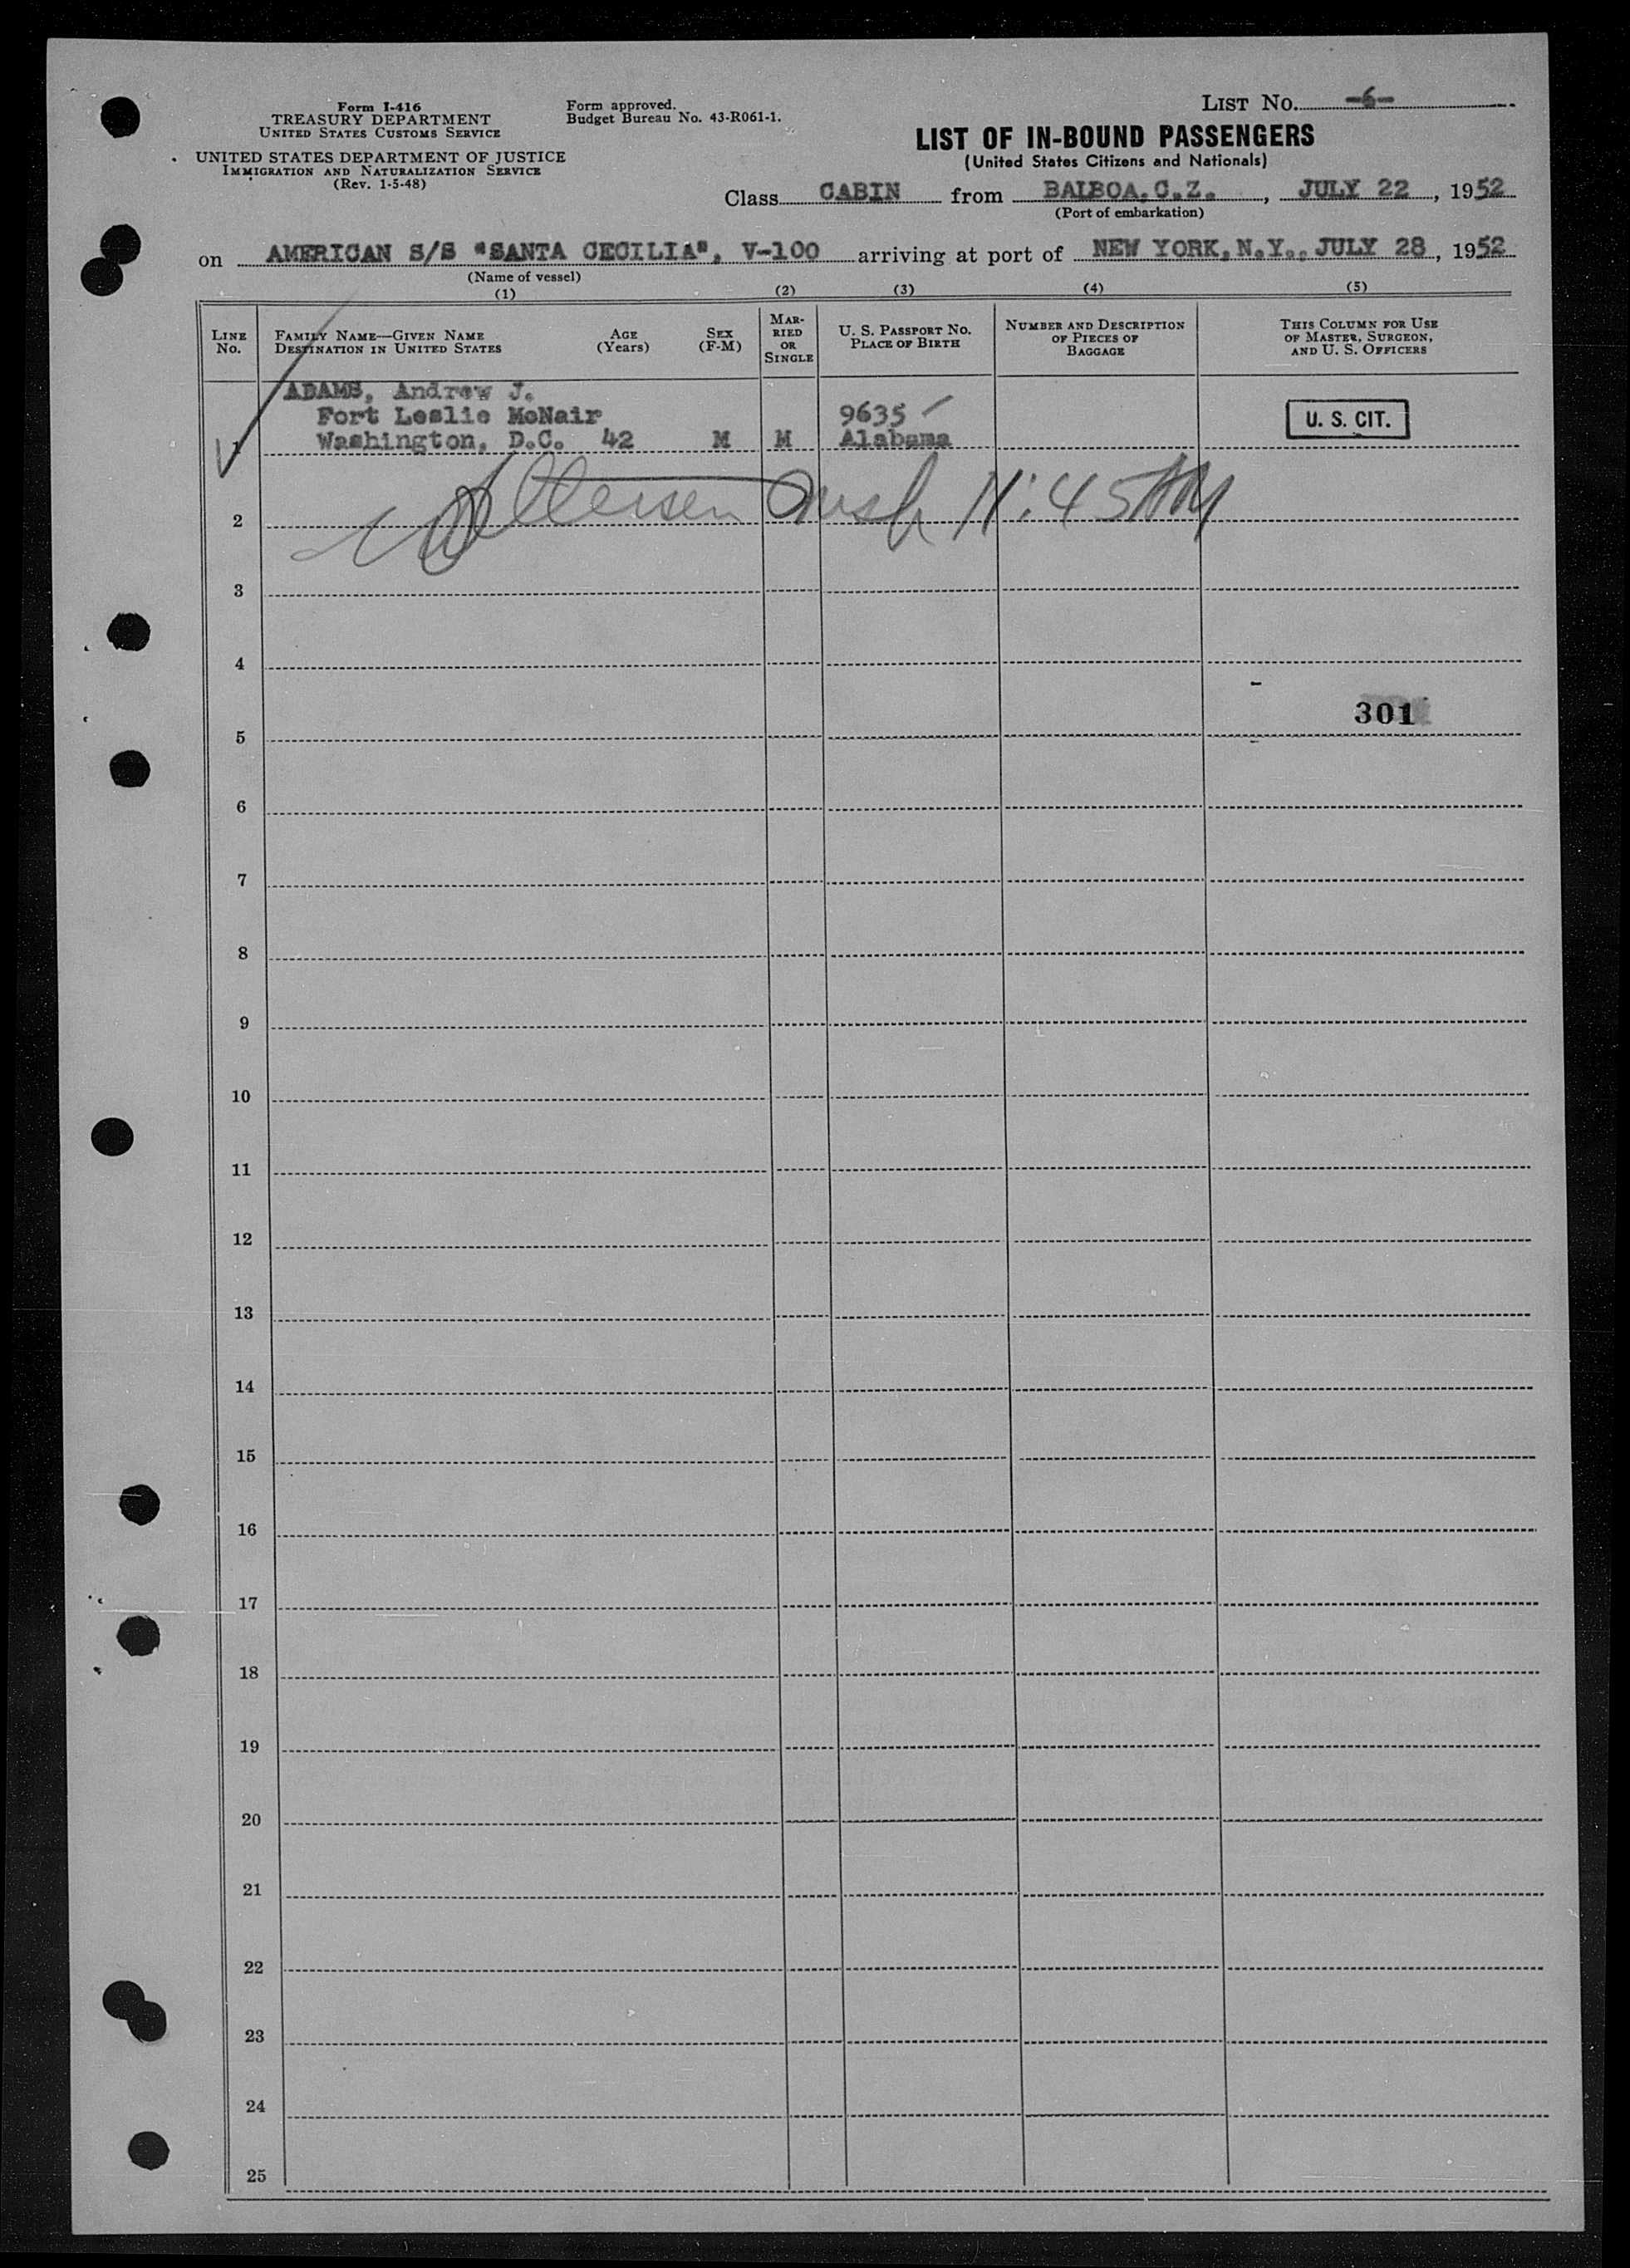 Form I-416
TREASURY DEPARTMENT
UNITED STATES CUSTOMS SERVICE
UNITED STATES DEPARTMENT OF JUSTICE
IMMIGRATION AND NATURALIZATION SERVICE
(Rev. 1-5-48)
Form approved.
Budget Bureau No. 43-R061-1.
LIST NO. -6-
LIST OF IN-BOUND PASSENGERS
(United States Citizens and Nationals)
Class CABIN from BALBOA, C.Z. , JULY 22 , 1952
(Port of embarkation)
on AMERICAN S/S "SANTA CECILIA", V-100 arriving at port of NEW YORK, N.Y., JULY 28 , 1952
(Name of vessel)
(1) (2) (3) (4) (5)
LINE NO.
FAMILY NAME—GIVEN NAME
DESTINATION IN UNITED STATES
AGE
(Years)
SEX
(F-M)
MAR-
RIED
OR
SINGLE
U. S. PASSPORT NO.
PLACE OF BIRTH
NUMBER AND DESCRIPTION
OF PIECES OF
BAGGAGE
THIS COLUMN FOR USE
OF MASTER, SURGEON,
AND U. S. OFFICERS
ADAMS, Andrew J.
Fort Leslie McNair 9635
1 Washington, D.C. 42 M M Alabama
U. S. CIT.
2 11:45 AM
3
4
301
5
6
7
8
9
10
11
12
13
14
15
16
17
18
19
20
21
22
23
24
25